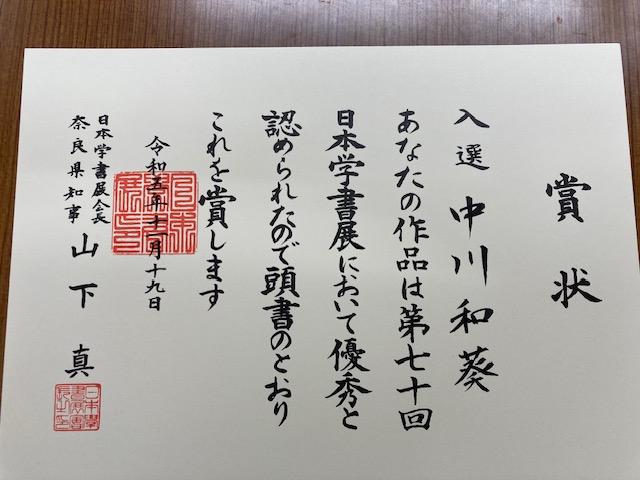 賞状
入選 中川和葵
あなたの作品は第七十回
日本学書展において優秀と
認められたので頭書のとおり
これを賞します
令和五年十一月十九日
日本学書展会長
奈良県知事 山下 真